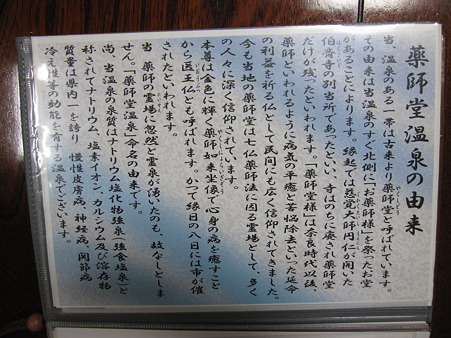 薬師堂温泉の由来
当、温泉のある一帯は古来より薬師堂と呼ばれています。
その由来は当温泉のすぐ北側に「お薬師様」を祭ったお堂
があることによります。縁起では慈覚大師円仁が開いた
伯耆寺の別当所であったといい、寺はのちに廃され薬師堂
だけが残ったといわれます。「薬師堂様」は奈良時代以後、
薬師といわれるように病気の平癒と苦悩除去といった延命
の利益を祈る仏として民間にも広く信仰されてきました。
今も当地の薬師堂は七仏薬師法に因る霊場として、多く
の人々に深く信仰されています。
本尊は金色に輝く薬師如来坐像で心身の病を癒すこと
から医王仏とも呼ばれます。かつて縁日の八日には市が催
されたといわれます。
当、薬師の霊場に忽然と霊泉が湧いたのも、故なしとしま
せん。「薬師堂温泉」命名の由来です。
尚、当温泉の泉質はナトリウム塩化物強泉(強食塩泉)と
称されてナトリウム、塩素イオン、カルシウム及び溶存物
質量は県内一を誇り、慢性皮膚病、神経病、関節病
冷え性等の効能を有する温泉でございます。